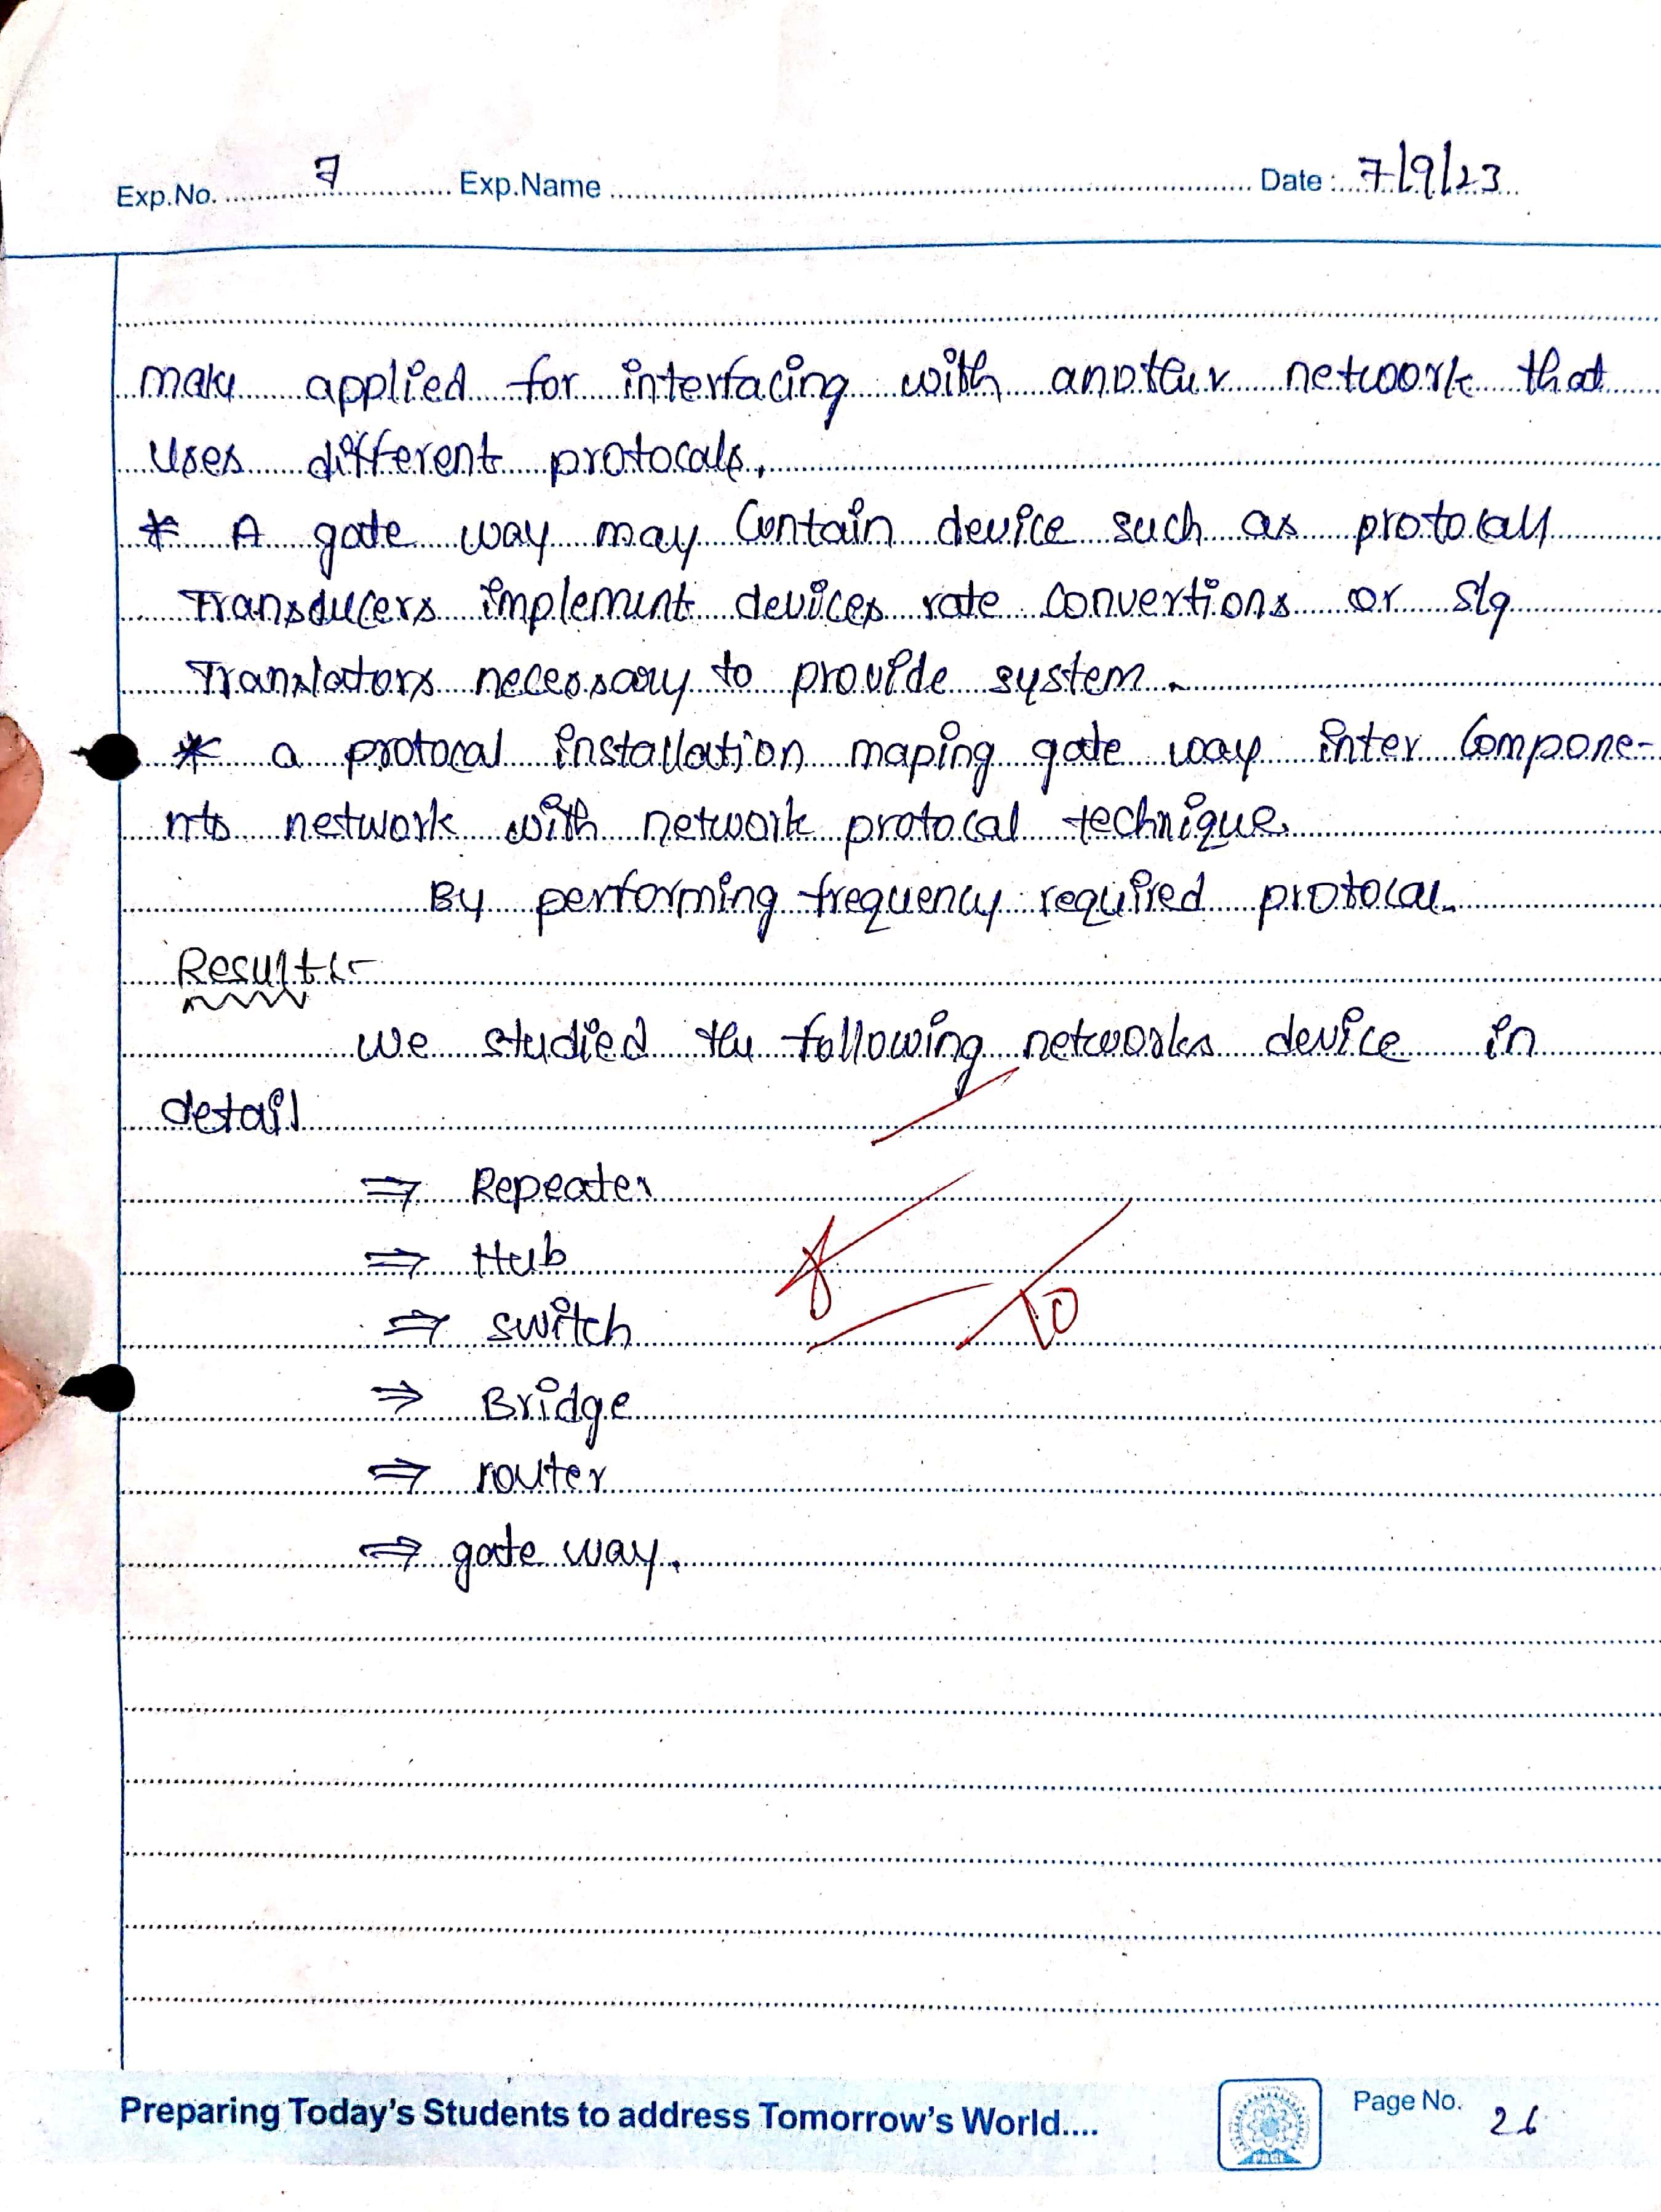 Exp.No. 7 Exp.Name Date : 7/9/23
make applied for interfacing with another network that
uses different protocals.
* A gate way may contain device such as protocall
Transducers implement devices rate convertions or slg
Translators necessary to provide system.
* a protocal installation maping gate way inter compone-
nts network with network protocal technique.
By performing frequency required protocal.
Result :-
We studied the following networks device in
detail
⇒ Repeater
⇒ Hub
⇒ switch
8/10
⇒ Bridge
⇒ router
⇒ gate way.
Preparing Today's Students to address Tomorrow's World....
PACE
Page No. 26